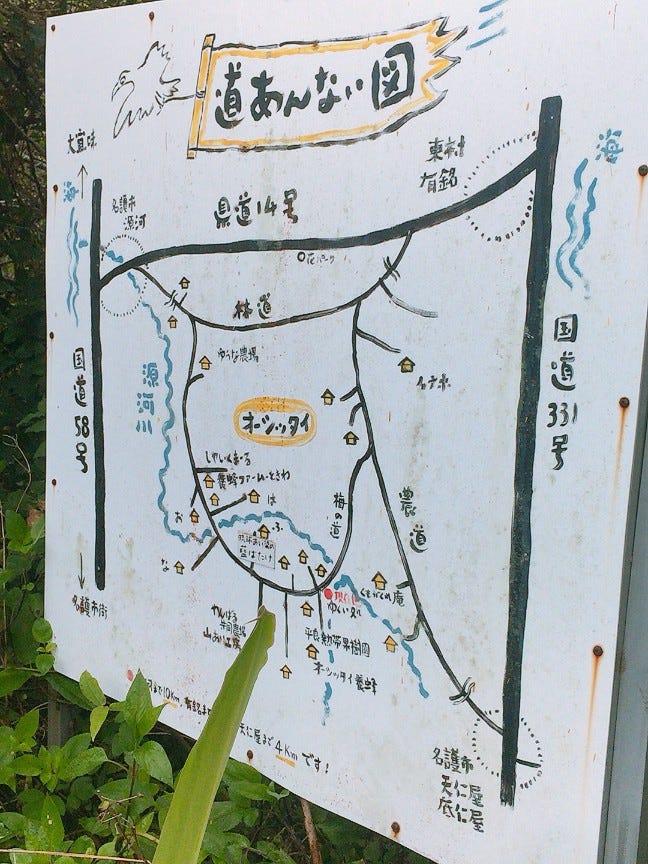 道あんない図
大宜味
海
名護市
源河
県道14号
東村
有銘
海
花パーク
林道
国道58号
源河川
ゆうな農場
オーシッタイ
国道331号
農道
梅の道
しゃしんまーる
養蜂ファームときわ
は
お
な
ふ
藍はたけ
名護市街
現在地
ゆい処
くまがくれ庵
やんばる
共同農場
山あい工房
平良熱帯果樹園
オーシッタイ養蜂
10Km
天仁屋まで4Kmです！
名護市
天仁屋
底仁屋